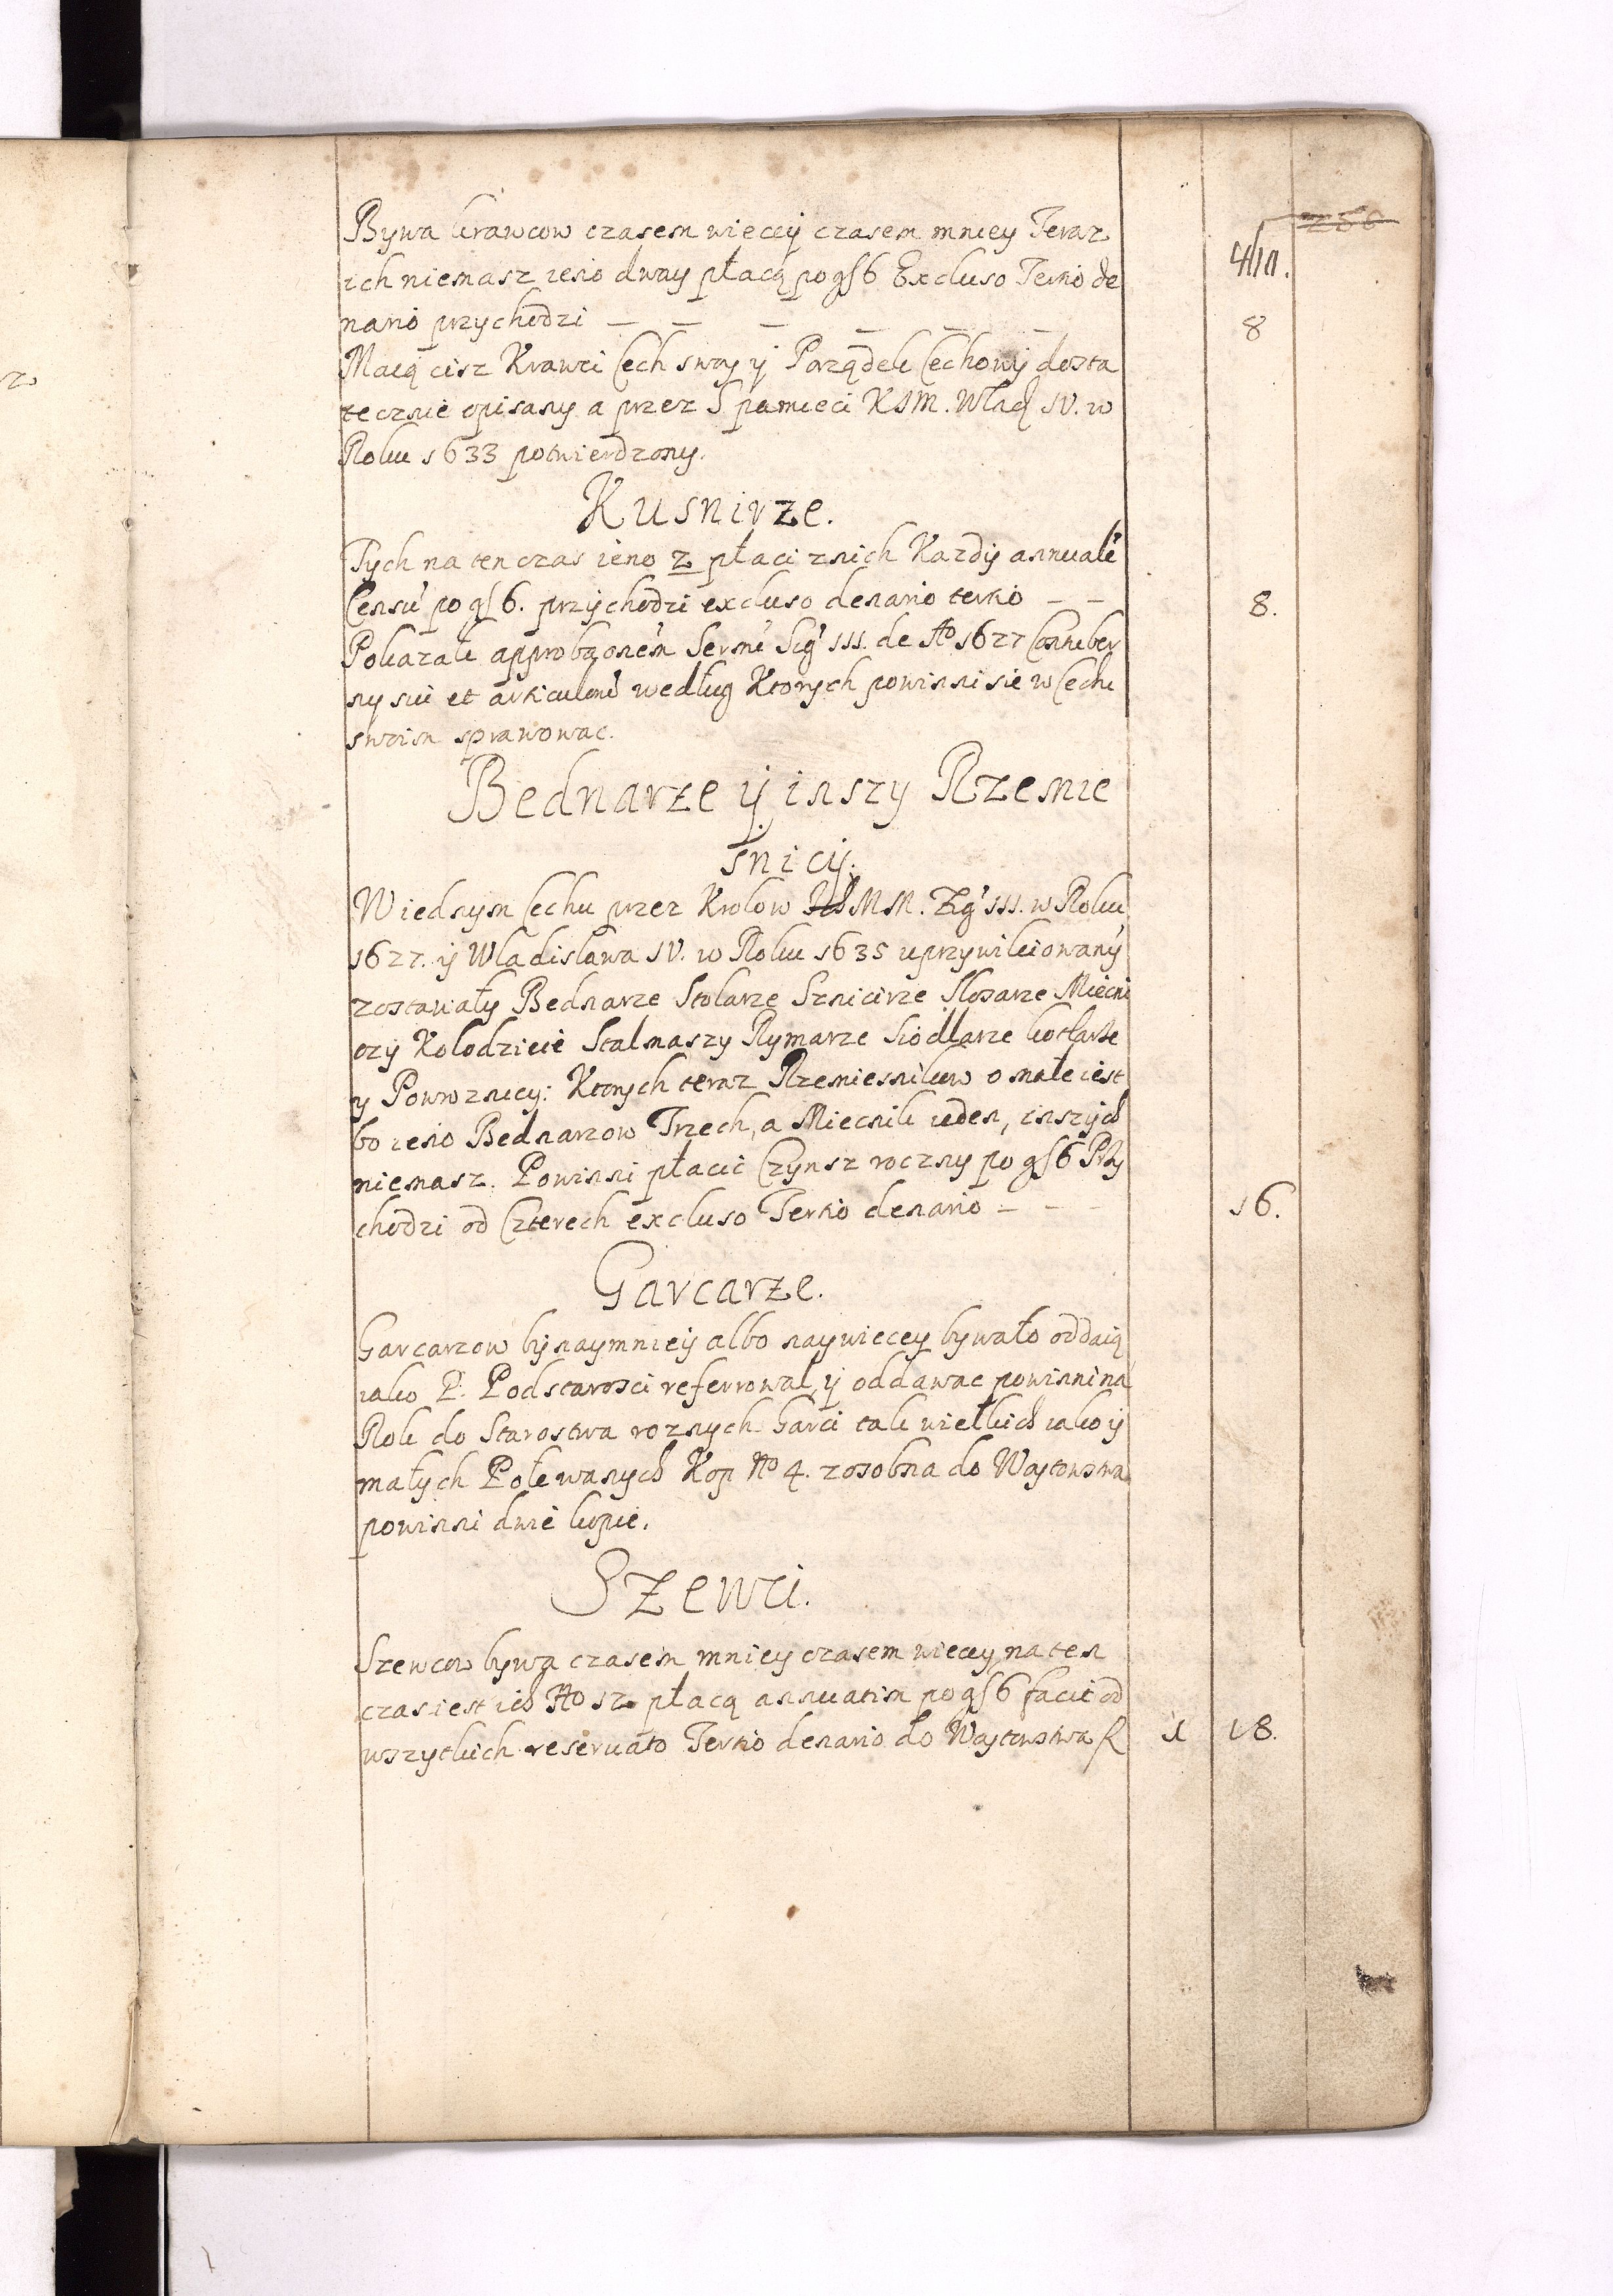 Bywa krawcow czasem wiecey czasem mniey Teraz
ich niemasz ieno dway płacą po gſ 6 Excluso Tertio de
nario przychodzi — — — — — — 8
Maią cisz Krawci Cech swoy ÿ Porządek Cechowÿ dosta
tecznie opisany a przez S pamieci KJM. Wład IV. w
Roku 1633 potwierdzony.
Kusnirze.
Tych na ten czas ieno 2 płaci znich Kazdÿ annuale
Censu po gſ 6. przÿchodzi excluso denario tertio — — 8.
Pokazali approbationem Sermi Sig III. de Ao 1627 Contuber
nÿ sui et articulorum według Ktorych powinni sie w Cechu
swoim sprawowac.
Bednarze ÿ inszy Rzemie
snicÿ.
W iednym Cechu przez Krolow MM. Zyg III. w Roku
1627. ÿ Wladislawa IV. w Roku 1635 uprzywileiowanÿ
zostawały Bednarze Stolarze Sznicirze Slosarze Miecni
czÿ Kolodzieie Stalmaszy Rymarze Siodlarze kotlarze
y Powroznicy: Ktorych teraz Rzemiesnikow o małe iest
bo ieno Bednarzow Trzech, a Miecnik ieden, inszÿch
niemasz. Powinni płacic Czÿnsz roczny po gſ 6 Przy
chodzi od Czterech excluso Tertio denario — — — 16.
Garcarze.
Garcarzow bÿ naymnieÿ albo naywiecey bywało oddaią
iako P. Podstarosci referrowal, ÿ oddawac powinni na
Rok do Starostwa roznych Garci tak wielkich iako ÿ
małych Polewanych Kop No 4. zosobna do Woytowstwa
powinni dwie kopie.
Szewci.
Szewcow bywa czasem mniey czasem wiecey na ten
czas iest ich No 12 płacą annuatim po gſ 6 facit od
wszytkich reservato Tertio denario do Woytowstwa f 1 18.